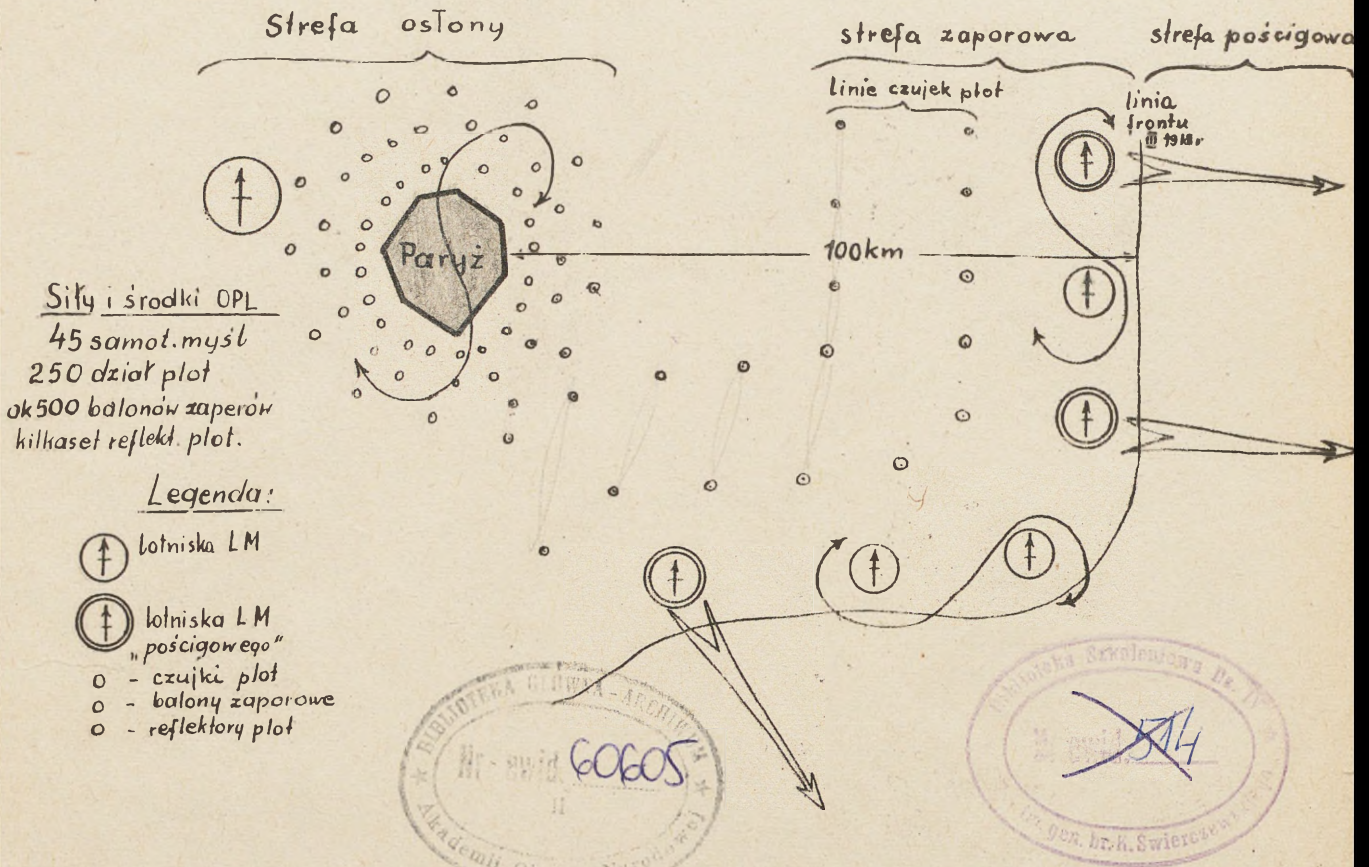 Strefa osłony
strefa zaporowa
strefa pościgowa
Linie czujek plot
linia
frontu
III 1918r
Paryż
100km
Siły i środki OPL
45 samot. myśl
250 dział plot
ok 500 balonów zaperów
kilkaset reflekt. plot.
Legenda:
lotniska LM
lotniska LM
„pościgowego"
o - czujki plot
o - balony zaporowe
o - reflektory plot
BIBLIOTEKA GŁÓWNA - ARCHIWUM
Nr ewid. 60605
II
Akademii
Biblioteka Szkoleniowa
Nr ewid. 514
im. gen. br. K. Świerczewskiego